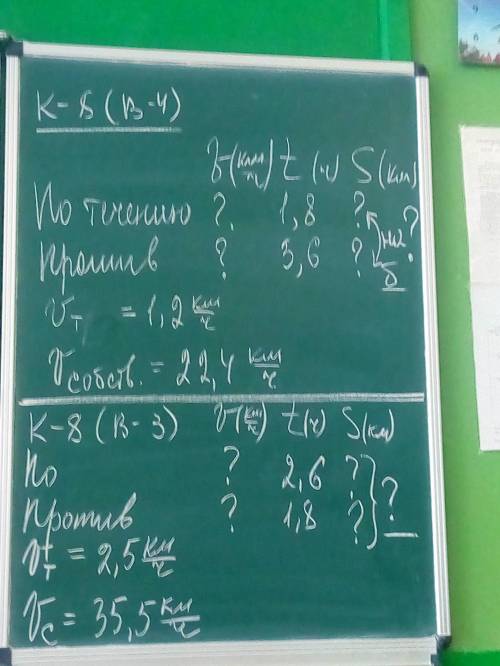 К-8 (В-4)
V(км/ч) t (ч) S(км)
По течению ? 1,8 ?
Против ? 3,6 ? на ? б
Vт = 1,2 км/ч
Vсобств. = 22,4 км/ч
К-8 (В-3) V(км/ч) t(ч) S(км)
По ? 2,6 ?
Против ? 1,8 ? ?
Vт = 2,5 км/ч
Vс = 35,5 км/ч